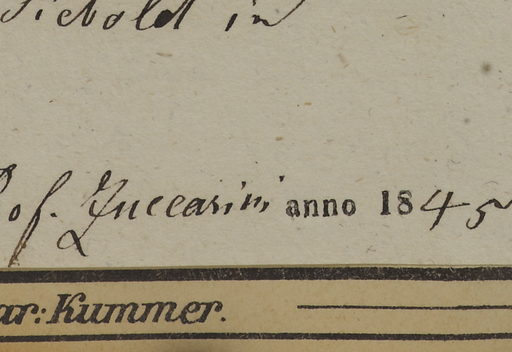 Siebold in
Prof. Zuccarini anno 1845
ar: Kummer.